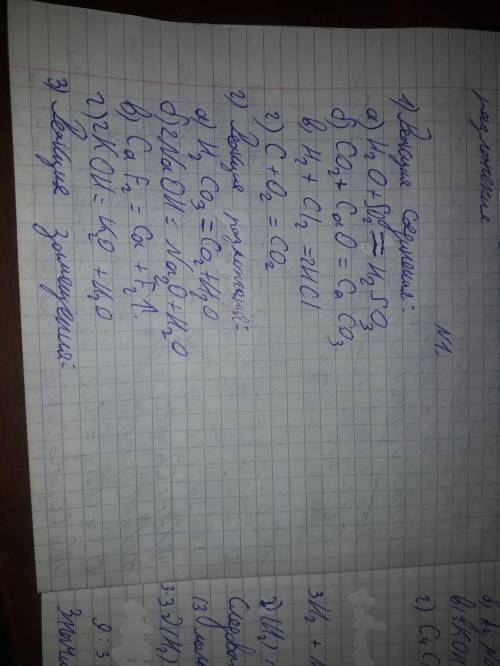 разложения
N1.
1) Реакция соединения:
а) H₂O + SO₂ = H₂SO₃
б) CO₂ + CaO = CaCO₃
в) H₂ + Cl₂ = 2HCl
г) C + O₂ = CO₂
2) Реакция разложения:
а) H₂CO₃ = CO₂ + H₂O
б) 2NaOH = Na₂O + H₂O
в) CaF₂ = Ca + F₂↑.
г) 2KOH = K₂O + H₂O
3) Реакция замещения:
3H₂ +
Следов
9:3
Значи